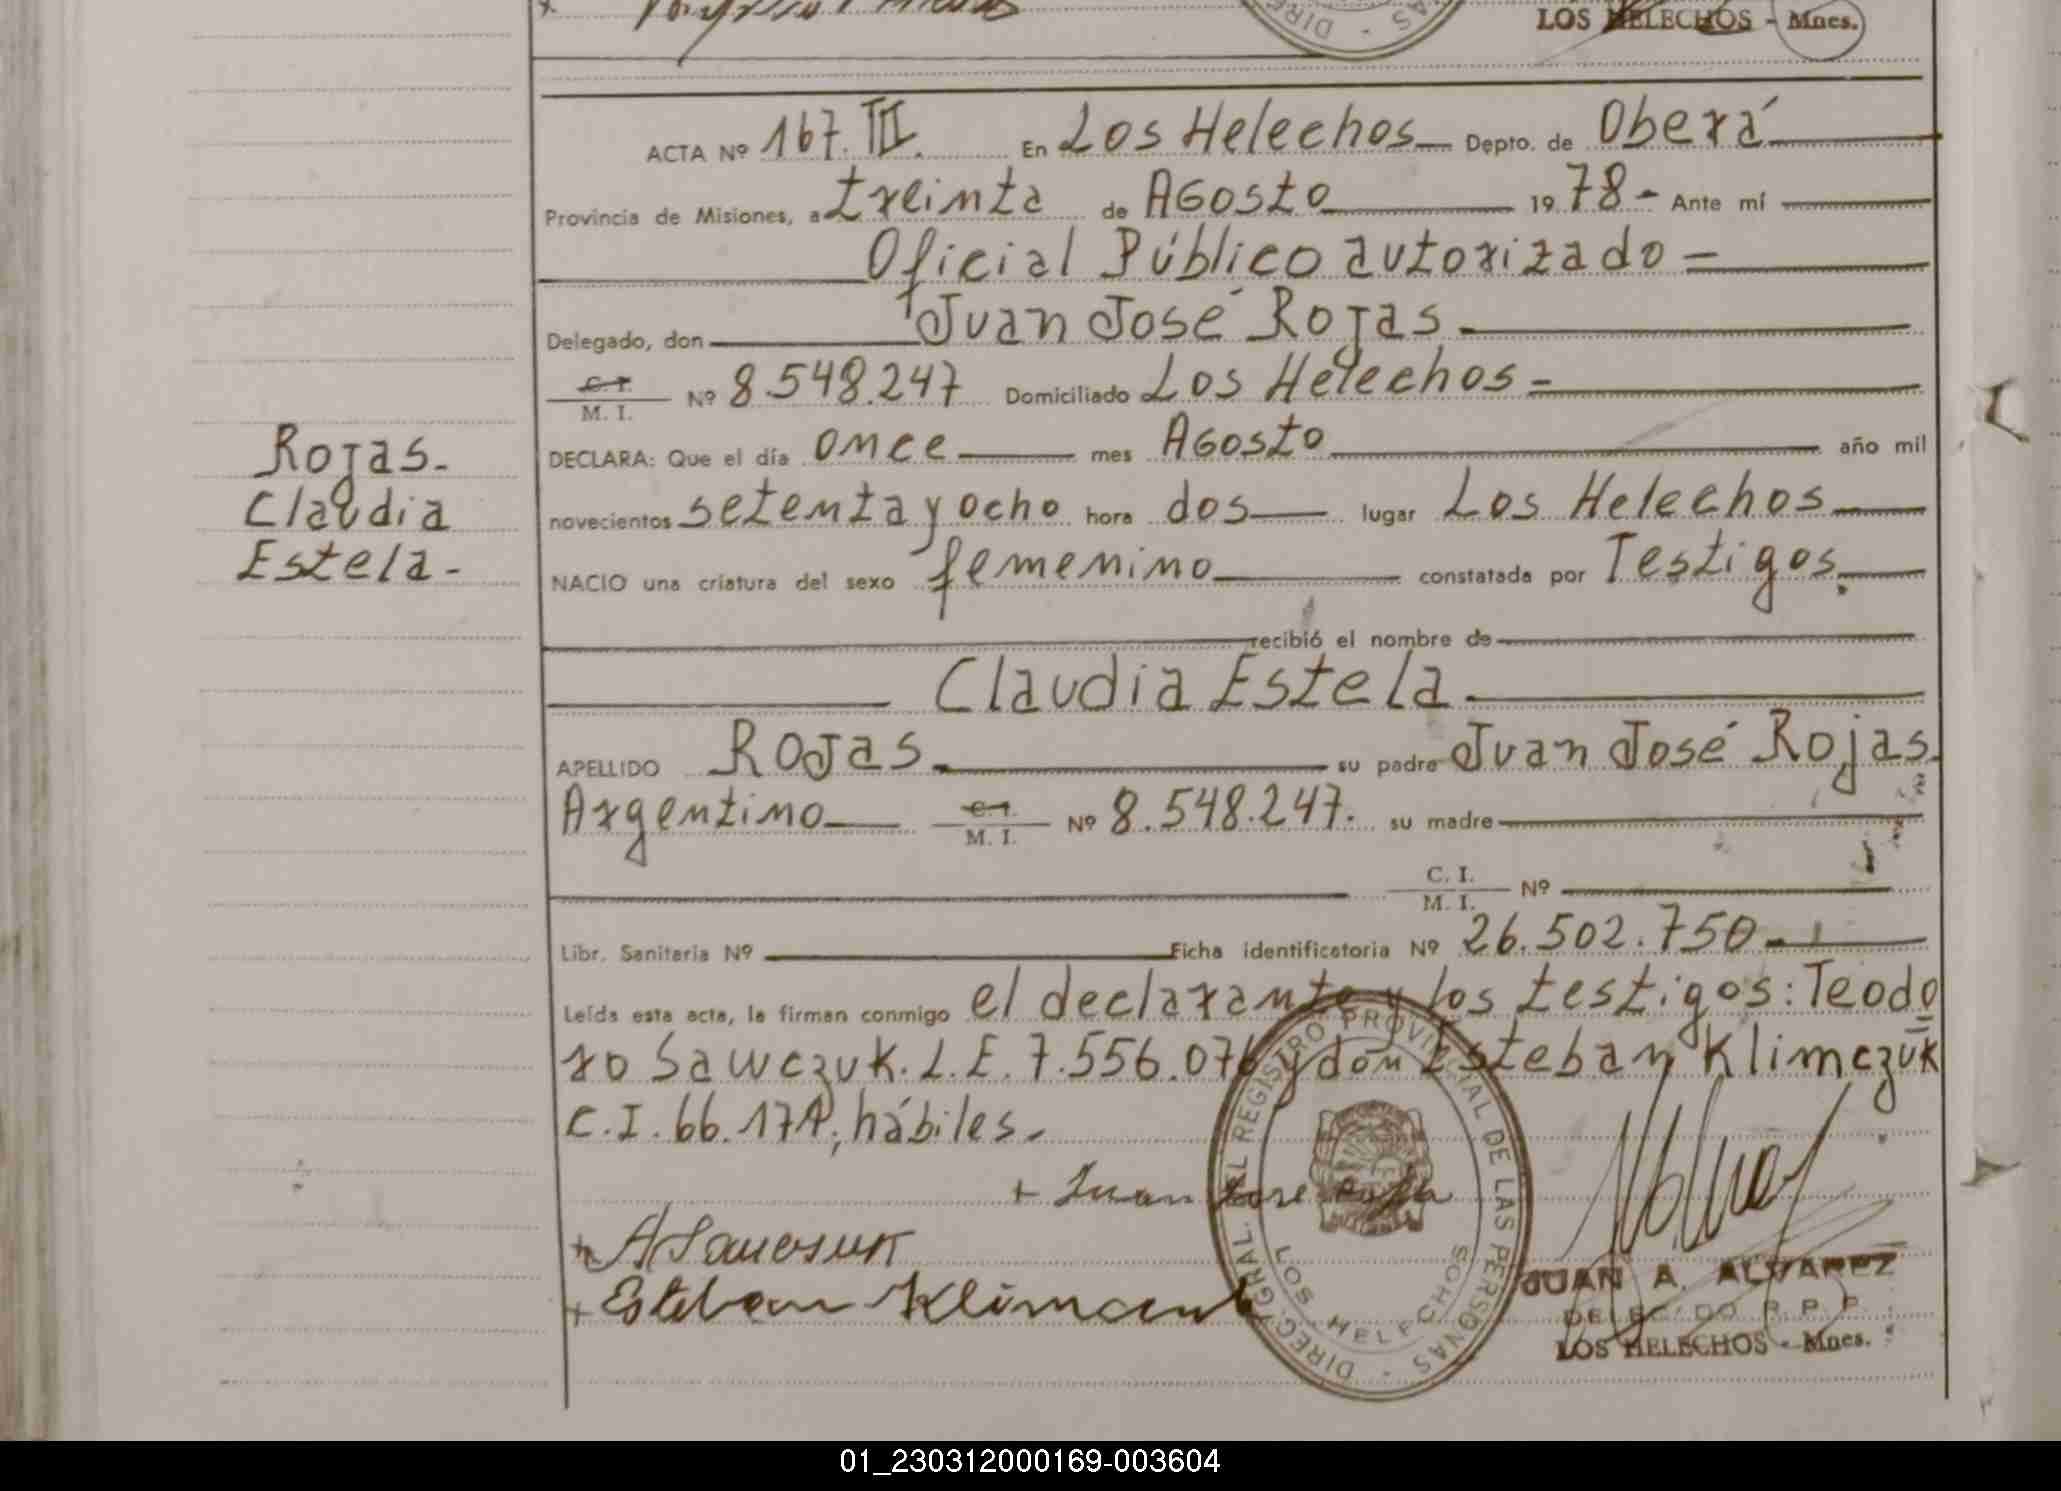 LOS HELECHOS - Mnes.
ACTA Nº 167. III. En Los Helechos Depto. de Oberá
Provincia de Misiones, a treinta de Agosto 1978 - Ante mí
Oficial Público autorizado -
Delegado, don Juan José Rojas
C. I. / M. I. Nº 8.548.247 Domiciliado Los Helechos -
DECLARA: Que el día once mes Agosto año mil
novecientos setenta y ocho hora dos lugar Los Helechos
NACIO una criatura del sexo femenino constatada por Testigos.
recibió el nombre de
Claudia Estela
APELLIDO Rojas. su padre Juan José Rojas.
Argentino C. I. / M. I. Nº 8.548.247. su madre
C. I. / M. I. Nº
Libr. Sanitaria Nº Ficha identificatoria Nº 26.502.750 -
Leída esta acta, la firman conmigo el declarante y los testigos: Teodo
ro Sawczuk. L. E. 7.556.076 y don Esteban Klimczuk
C. I. 66.174, hábiles.
Rojas.
Claudia
Estela.
+ Juan Jose Rojas
+ Esteban Klimczuk
DIREC. GRAL. DEL REGISTRO PROVINCIAL DE LAS PERSONAS
LOS HELECHOS
JUAN A. ALVAREZ
DELEGADO R. P. P.
LOS HELECHOS - Mnes.
01_230312000169-003604